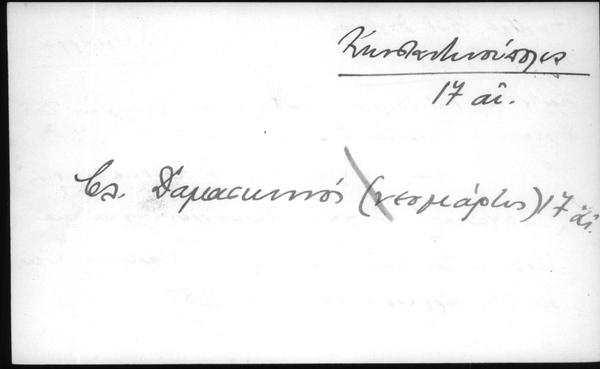 Κωνσταντινούπολις
17 αἰ.
βλ. Δαμασκηνός (νεομάρτυς) 17 αἰ.